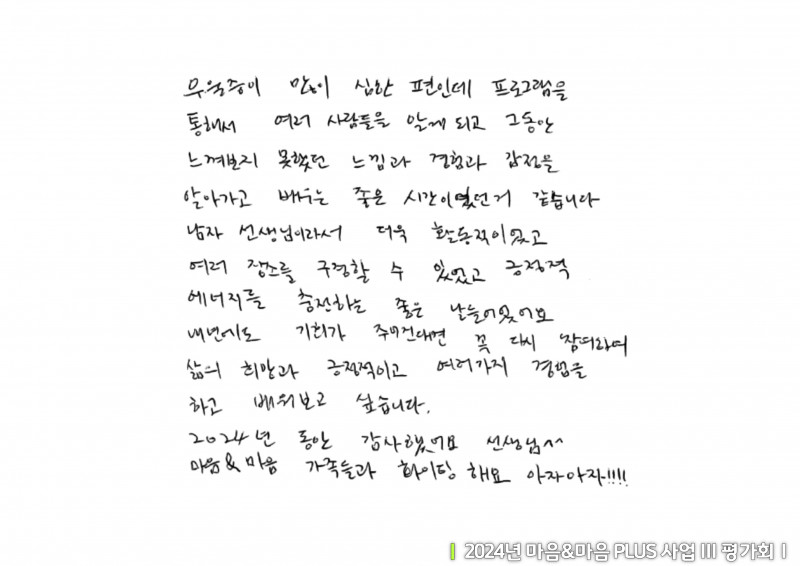 우울증이 많이 심한 편인데 프로그램을
통해서 여러 사람들을 알게 되고 그동안
느껴보지 못했던 느낌과 경험과 감정을
알아가고 배우는 좋은 시간이였던거 같습니다
남자 선생님이라서 더욱 활동적이였고
여러 장소를 구경할 수 있었고 긍정적
에너지를 충전하는 좋은 날들이었어요
내년에도 기회가 주어진다면 꼭 다시 참여하여
삶의 희망과 긍정적이고 여러가지 경험을
하고 배워보고 싶습니다.
2024년 동안 감사했어요 선생님^^
마음&마음 가족들과 화이팅 해요 아자아자!!!!
2024년 마음&마음 PLUS 사업 III 평가회